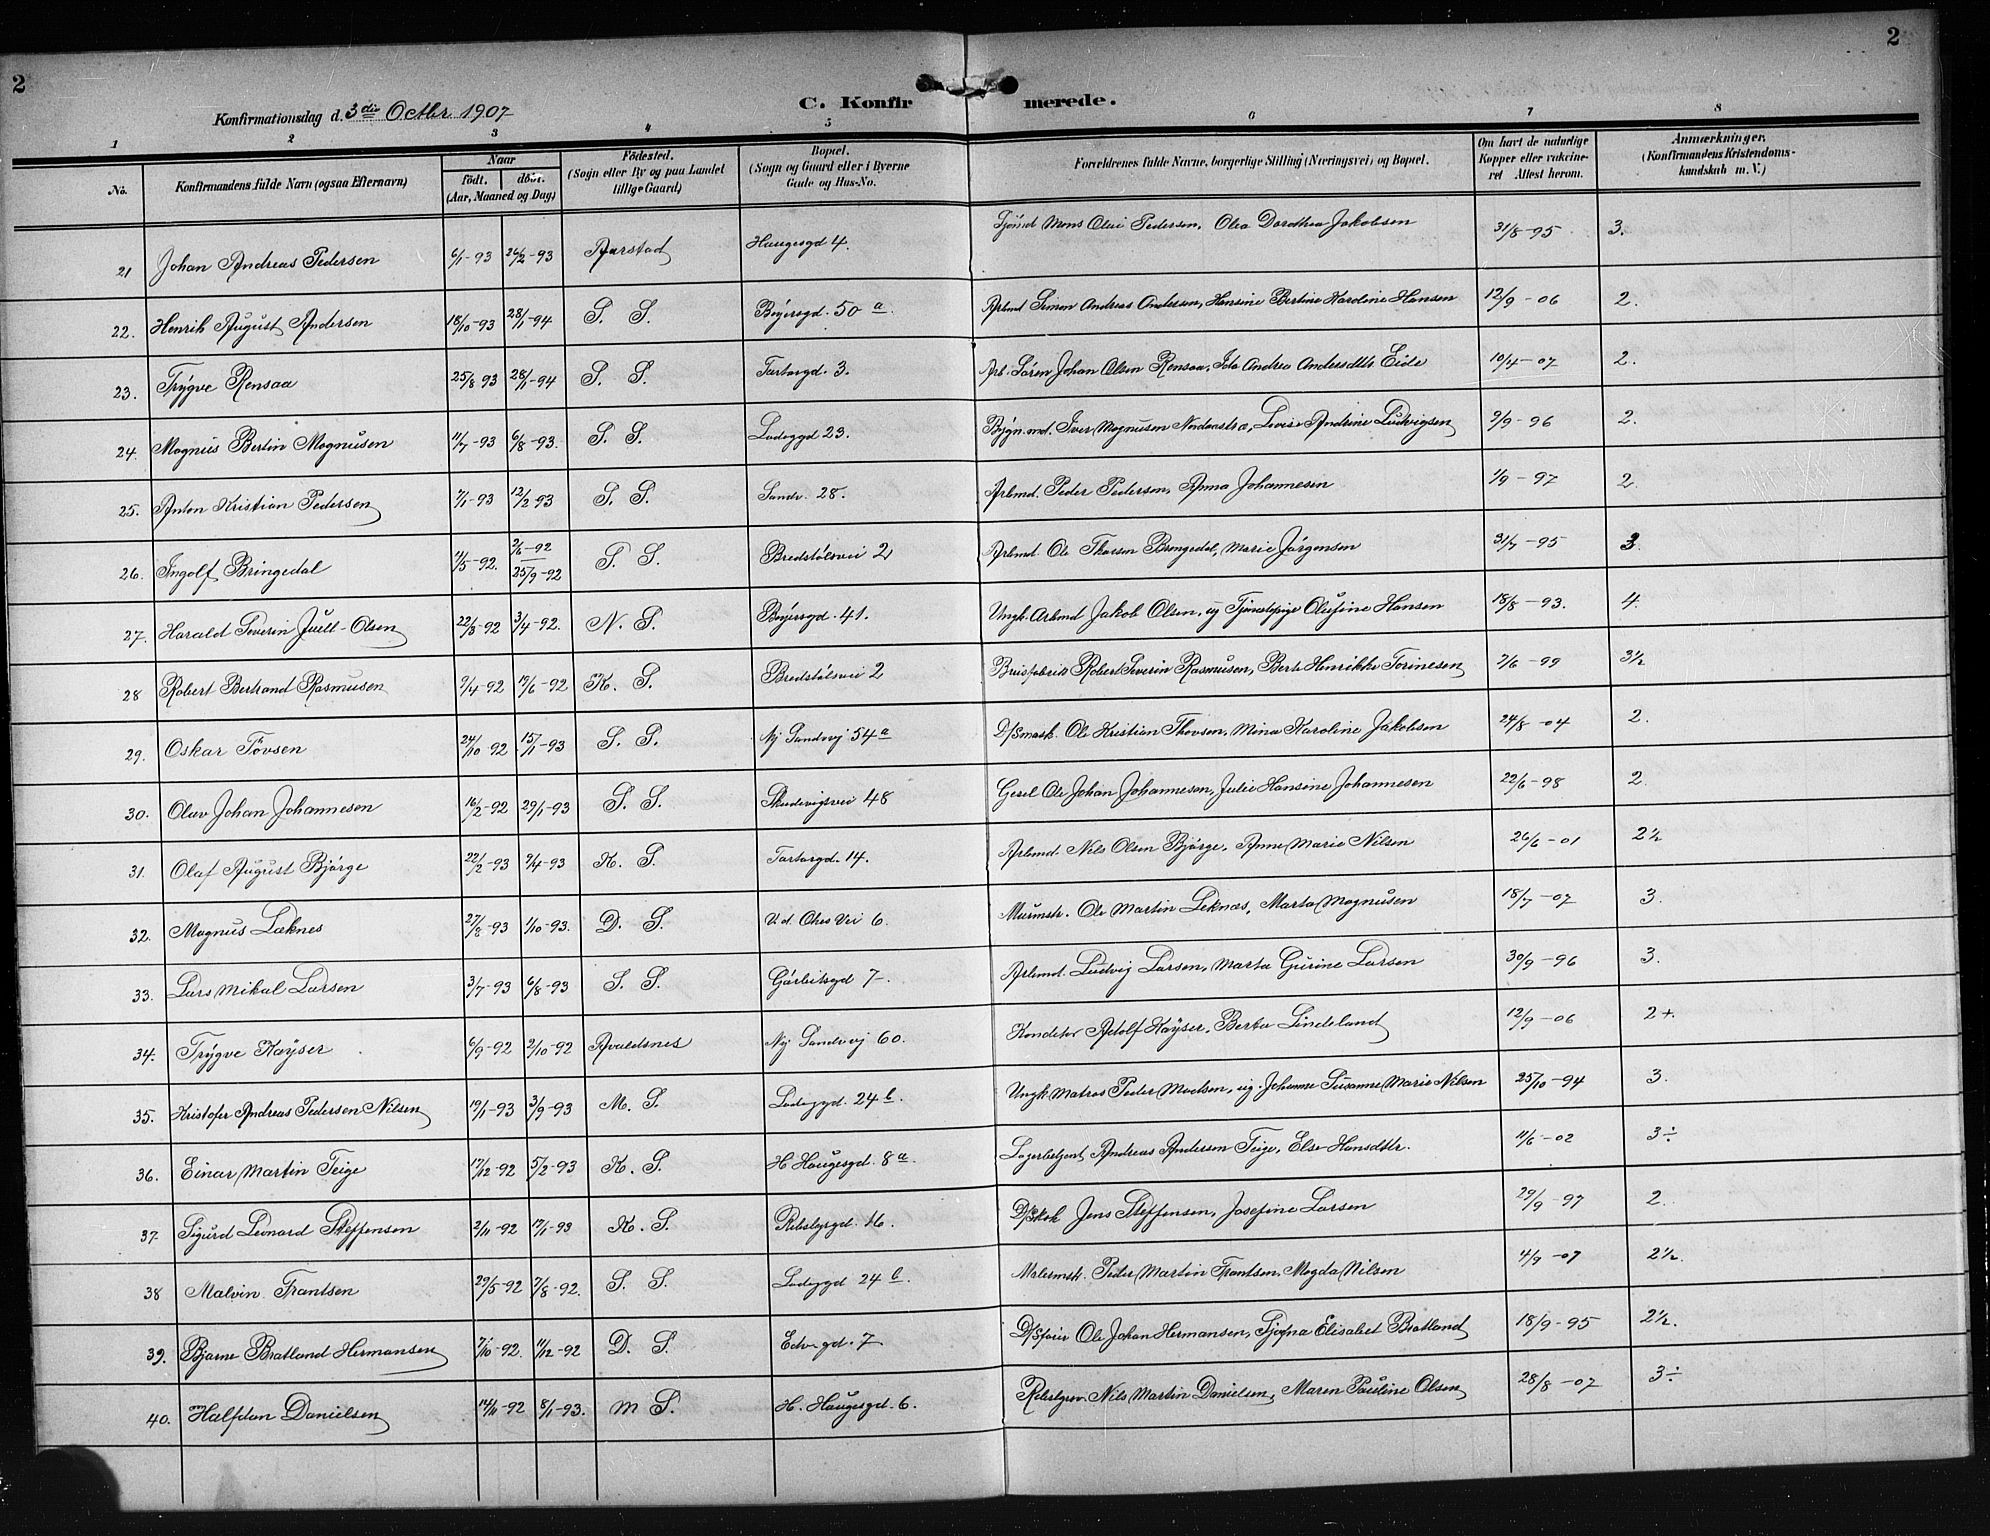 2
2
C. Konfirmerede.
Konfirmationsdag d. 3die Octbr. 1907
1 2 3 4 5 6 7 8
No. Konfirmandens fulde Navn (ogsaa Efternavn) Naar født. døbt. (Aar, Maaned og Dag) Fødested. (Sogn eller By og paa Landet tillige Gaard) Bopæl. (Sogn og Gaard eller i Byerne Gade og Hus-No. Forældrenes fulde Navne, borgerlige Stilling (Næringsvei) og Bopæl. Om havt de naturlige Kopper eller vakcineret Attest herom. Anmærkninger. (Konfirmandens Kristendomskundskab m. V.)
21 Johan Andreas Pedersen 6/1-93 26/2-93 Aarstad Haugesgd 4. Mons Olai Pedersen, Olea Dorothea Jakobsen 31/8-95 3.
22. Henrik August Andersen 18/10-93 28/1-94 S. S. Bøyersgd. 50 a. Arbmd Simon Andreas Andersen, Hansine Bertine Karoline Hansen 12/9-06 2.
23. Trygve Rensaa 25/8 93 28/1-94 S. S. Tartargd. 3. Arb. Søren Johan Olsen Rensaa, Ida Andrea Andersdtr Eide 10/4-07 2.
24. Magnus Bertin Magnusen 11/7-93 6/8-93. S. S. Ladeggd 23. Bygn.md. Iver Magnusen, Lovise Andrine Ludvigsen 9/9-96 2.
25. Anton Kristian Pedersen 7/1-93 12/2 93 S. S. Sandv. 28. Arbmd. Peder Pedersen, Anna Johannesen 1/9-97 2.
26. Ingolf Bringedal 11/5-92. 2/6-92 25/9-92 S. S. Bredstølsvei 2 Arbmd. Ole Thorsen Bringedal, Marie Jørgensen 31/7-95 3.
27. Harald Severin Juell-Olsen 22/3-92 3/4-92. N. S. Bøyersgd. 41. Ungk. Arbmd Jakob Olsen, ug Tjenestepige Olufine Hansen 18/8-93. 4.
28 Robert Bertrand Rasmusen 9/4-92 19/6-92 K. S. Bredstølsvei 2 Brusfabrik Robert Severin Rasmusen, Berte Henrikke Torinesen 7/6-99 3½
29. Oskar Tøvsen 24/10-92 15/1-93 S. S. Ny Sandvvj 54 a D/Smask. Ole Kristian Thovsen, Mina Karoline Jakobsen 24/8-04 2.
30. Olav Johan Johannesen 16/2-92 29/1-93 S. S. Skudevigsvei 48 Gesel Ole Johan Johannesen, Julie Hansine Johannesen 22/6-98 2.
31. Olaf August Bjørge 22/2-93 9/4-93 K. S. Tartargd. 14. Arbmd. Nils Olsen Bjørge, Anne Marie Nilsen 26/6-01 2½
32. Magnus Læknes 27/8-93 1/10-93. D. S. Vei 6. Murmstr. Ole Martin Leknæs, Marta Magnusen 18/7-07 3.
33. Lars Mikal Larsen 3/7-93 6/8-93 S. S. Garbeitsgd 7. Arbmd. Ludvig Larsen, Marta Gurine Larsen 30/9-96 3.
34. Trygve Kayser 6/9-92 2/10-92 Avaldsnes Ny Sandvvj 60. Konditor Adolf Kayser, Berta Lindeland 12/9-06 2+.
35. Kristofer Andreas Pedersen Nilsen 19/1-93 3/9-93 M. S. Ladeggd 24 b. Ungk Matros Peder Madsen, ug. Johanne Susanne Marie Nilsen 25/10-94 3.
36. Einar Martin Teige 17/12-92 5/2-93 K. S. H Haugesgd. 8 a. Lagerbetjent Andreas Andersen Teige, Else Hansdtr. 11/6-02 3÷
37. Sigurd Leonard Steffensen 2/11-92 17/1-93 K. S. Rebslagsgd. 16. D/Skok Jens Steffensen, Josefine Larsen 29/9-97 2.
38 Malvin Frantsen 29/5-92 7/8-92. S. S. Ladeggd 24 b. Malermstr. Peder Martin Frantsen, Magda Nilsen 4/9-07 2½.
39. Bjarne Bratland Hermansen 7/10-92. 11/12-92 D. S. Edv gd. 7 D/Sfoier Ole Johan Hermansen, Elisabet Bratland 18/9-95 2½.
40. Halfdan Danielsen 14/11-92 8/1-93. M S. H. Haugesgd. 6. Nils Martin Danielsen, Maren Pauline Olsen 28/8-07 3÷